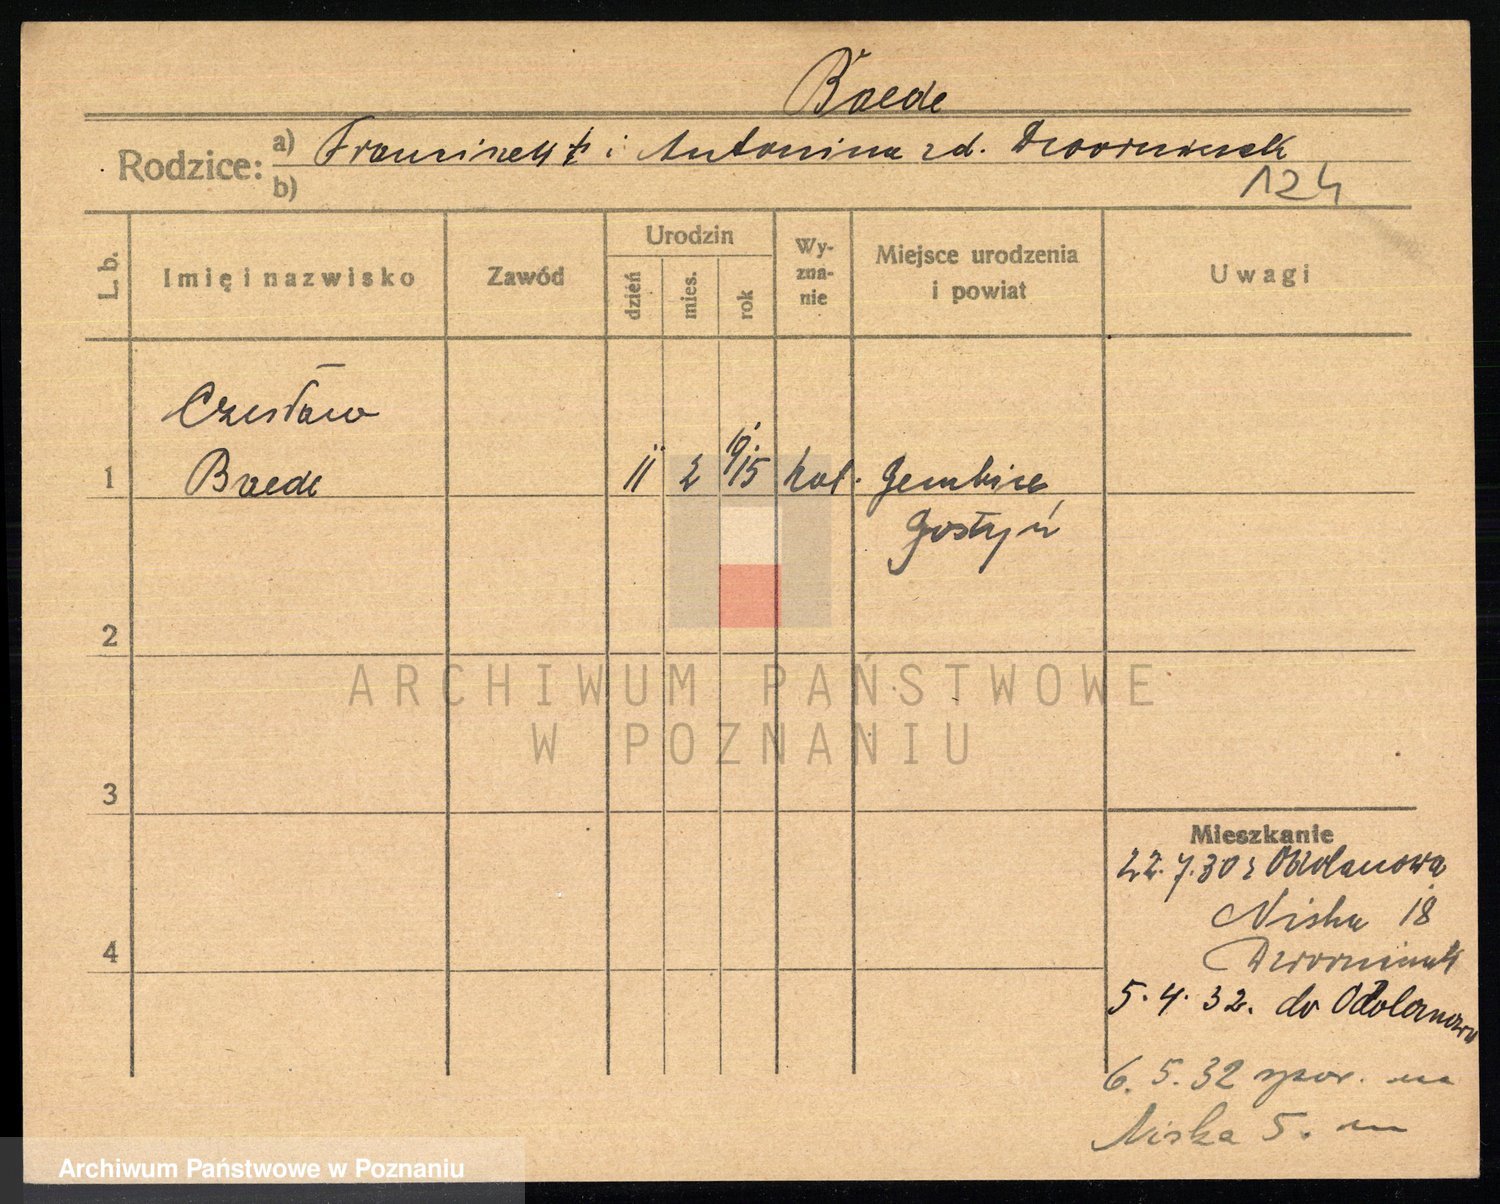 Boede
Rodzice: a) Franciszek † i Antonina zd. Dworniczak
b)
124
L. b.
Imię i nazwisko
Zawód
Urodzin
dzień
mies.
rok
Wy-
zna-
nie
Miejsce urodzenia
i powiat
Uwagi
Czesław
1 Boede 11 2 1915 kat. Gembice
Gostyń
2
ARCHIWUM PAŃSTWOWE
W POZNANIU
3
Mieszkanie
22.7.30 z Odolanowa
Niska 18
4
Dworniczak
5.4.32. do Odolanowa
6.5.32
Niska 5.
Archiwum Państwowe w Poznaniu